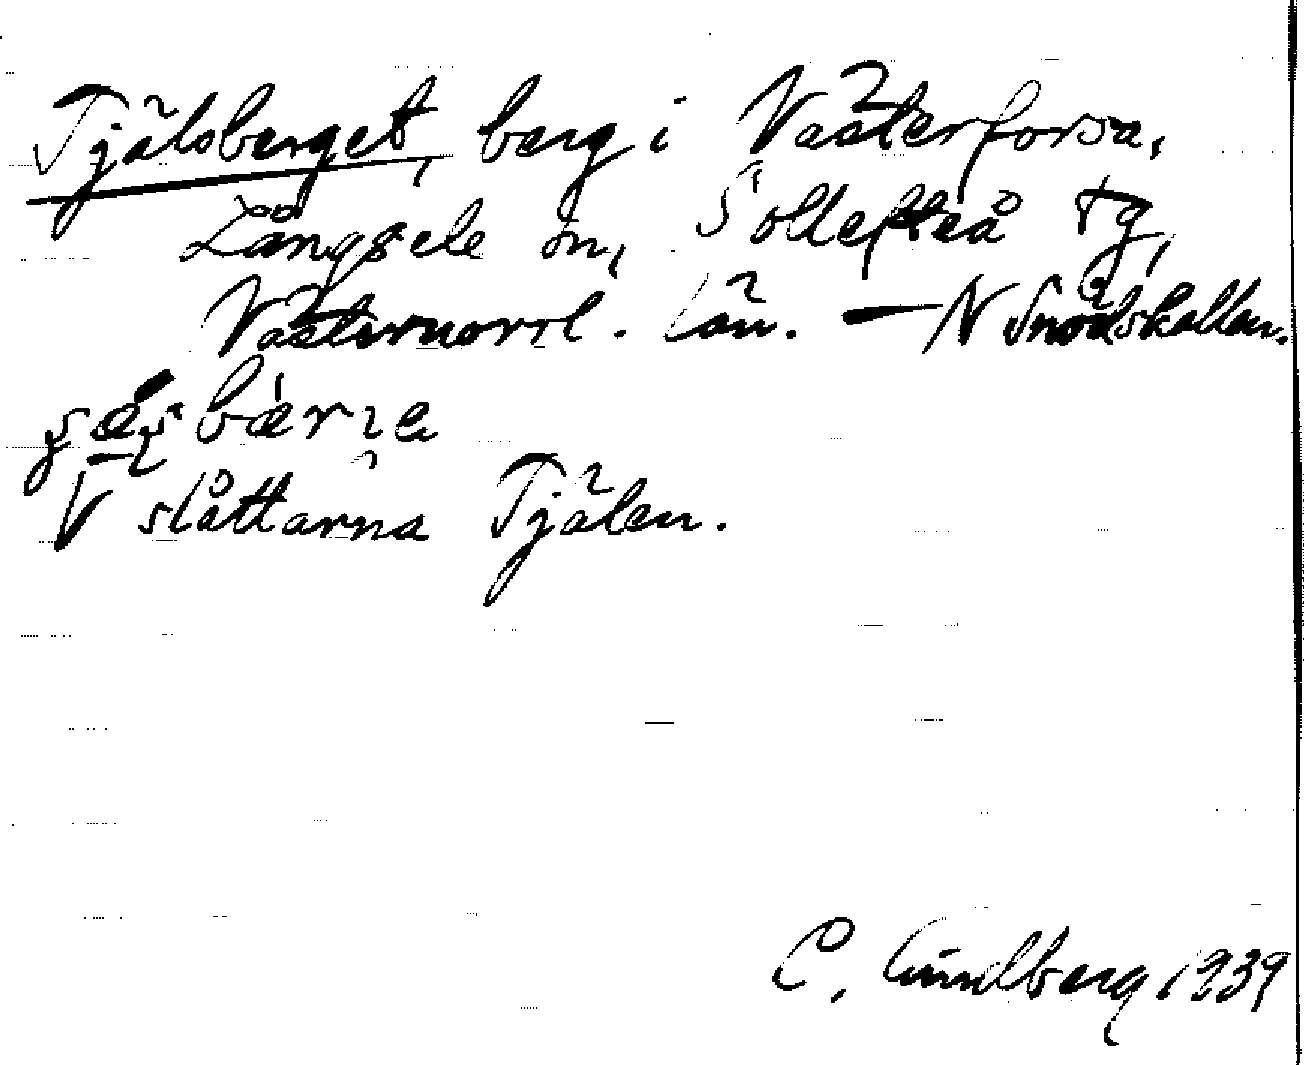 Tjälsberget, berg i Västerforsa,
Långsele sn, Sollefteå tg,
Västernorrl. län. — N Snödskallen.
V slåttarna Tjälen.
C. Lundberg 1939